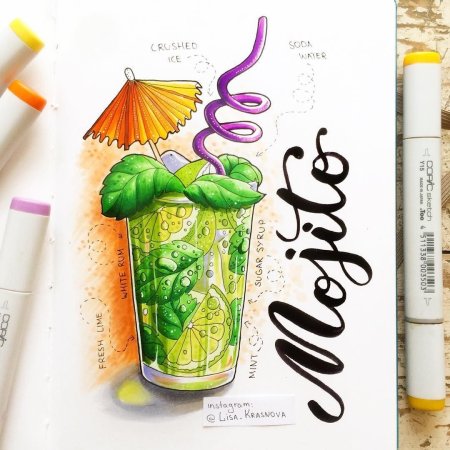 CRUSHED
ICE
SODA
WATER
Mojito
WHITE RUM
SUGAR SYRUP
FRESH LIME
MINT
instagram:
@ LISA_KRASNOVA
COPIC
sketch
Y15
Too
4511338003503
COPIC